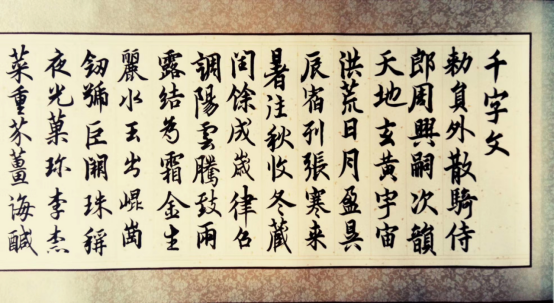 千字文
勅員外散騎侍
郎周興嗣次韻
天地玄黃宇宙
洪荒日月盈昃
辰宿列張寒来
暑往秋收冬藏
閏餘成歲律呂
調陽雲騰致雨
露結為霜金生
麗水玉出崐崗
劒號巨闕珠稱
夜光菓珍李柰
菜重芥薑海醎